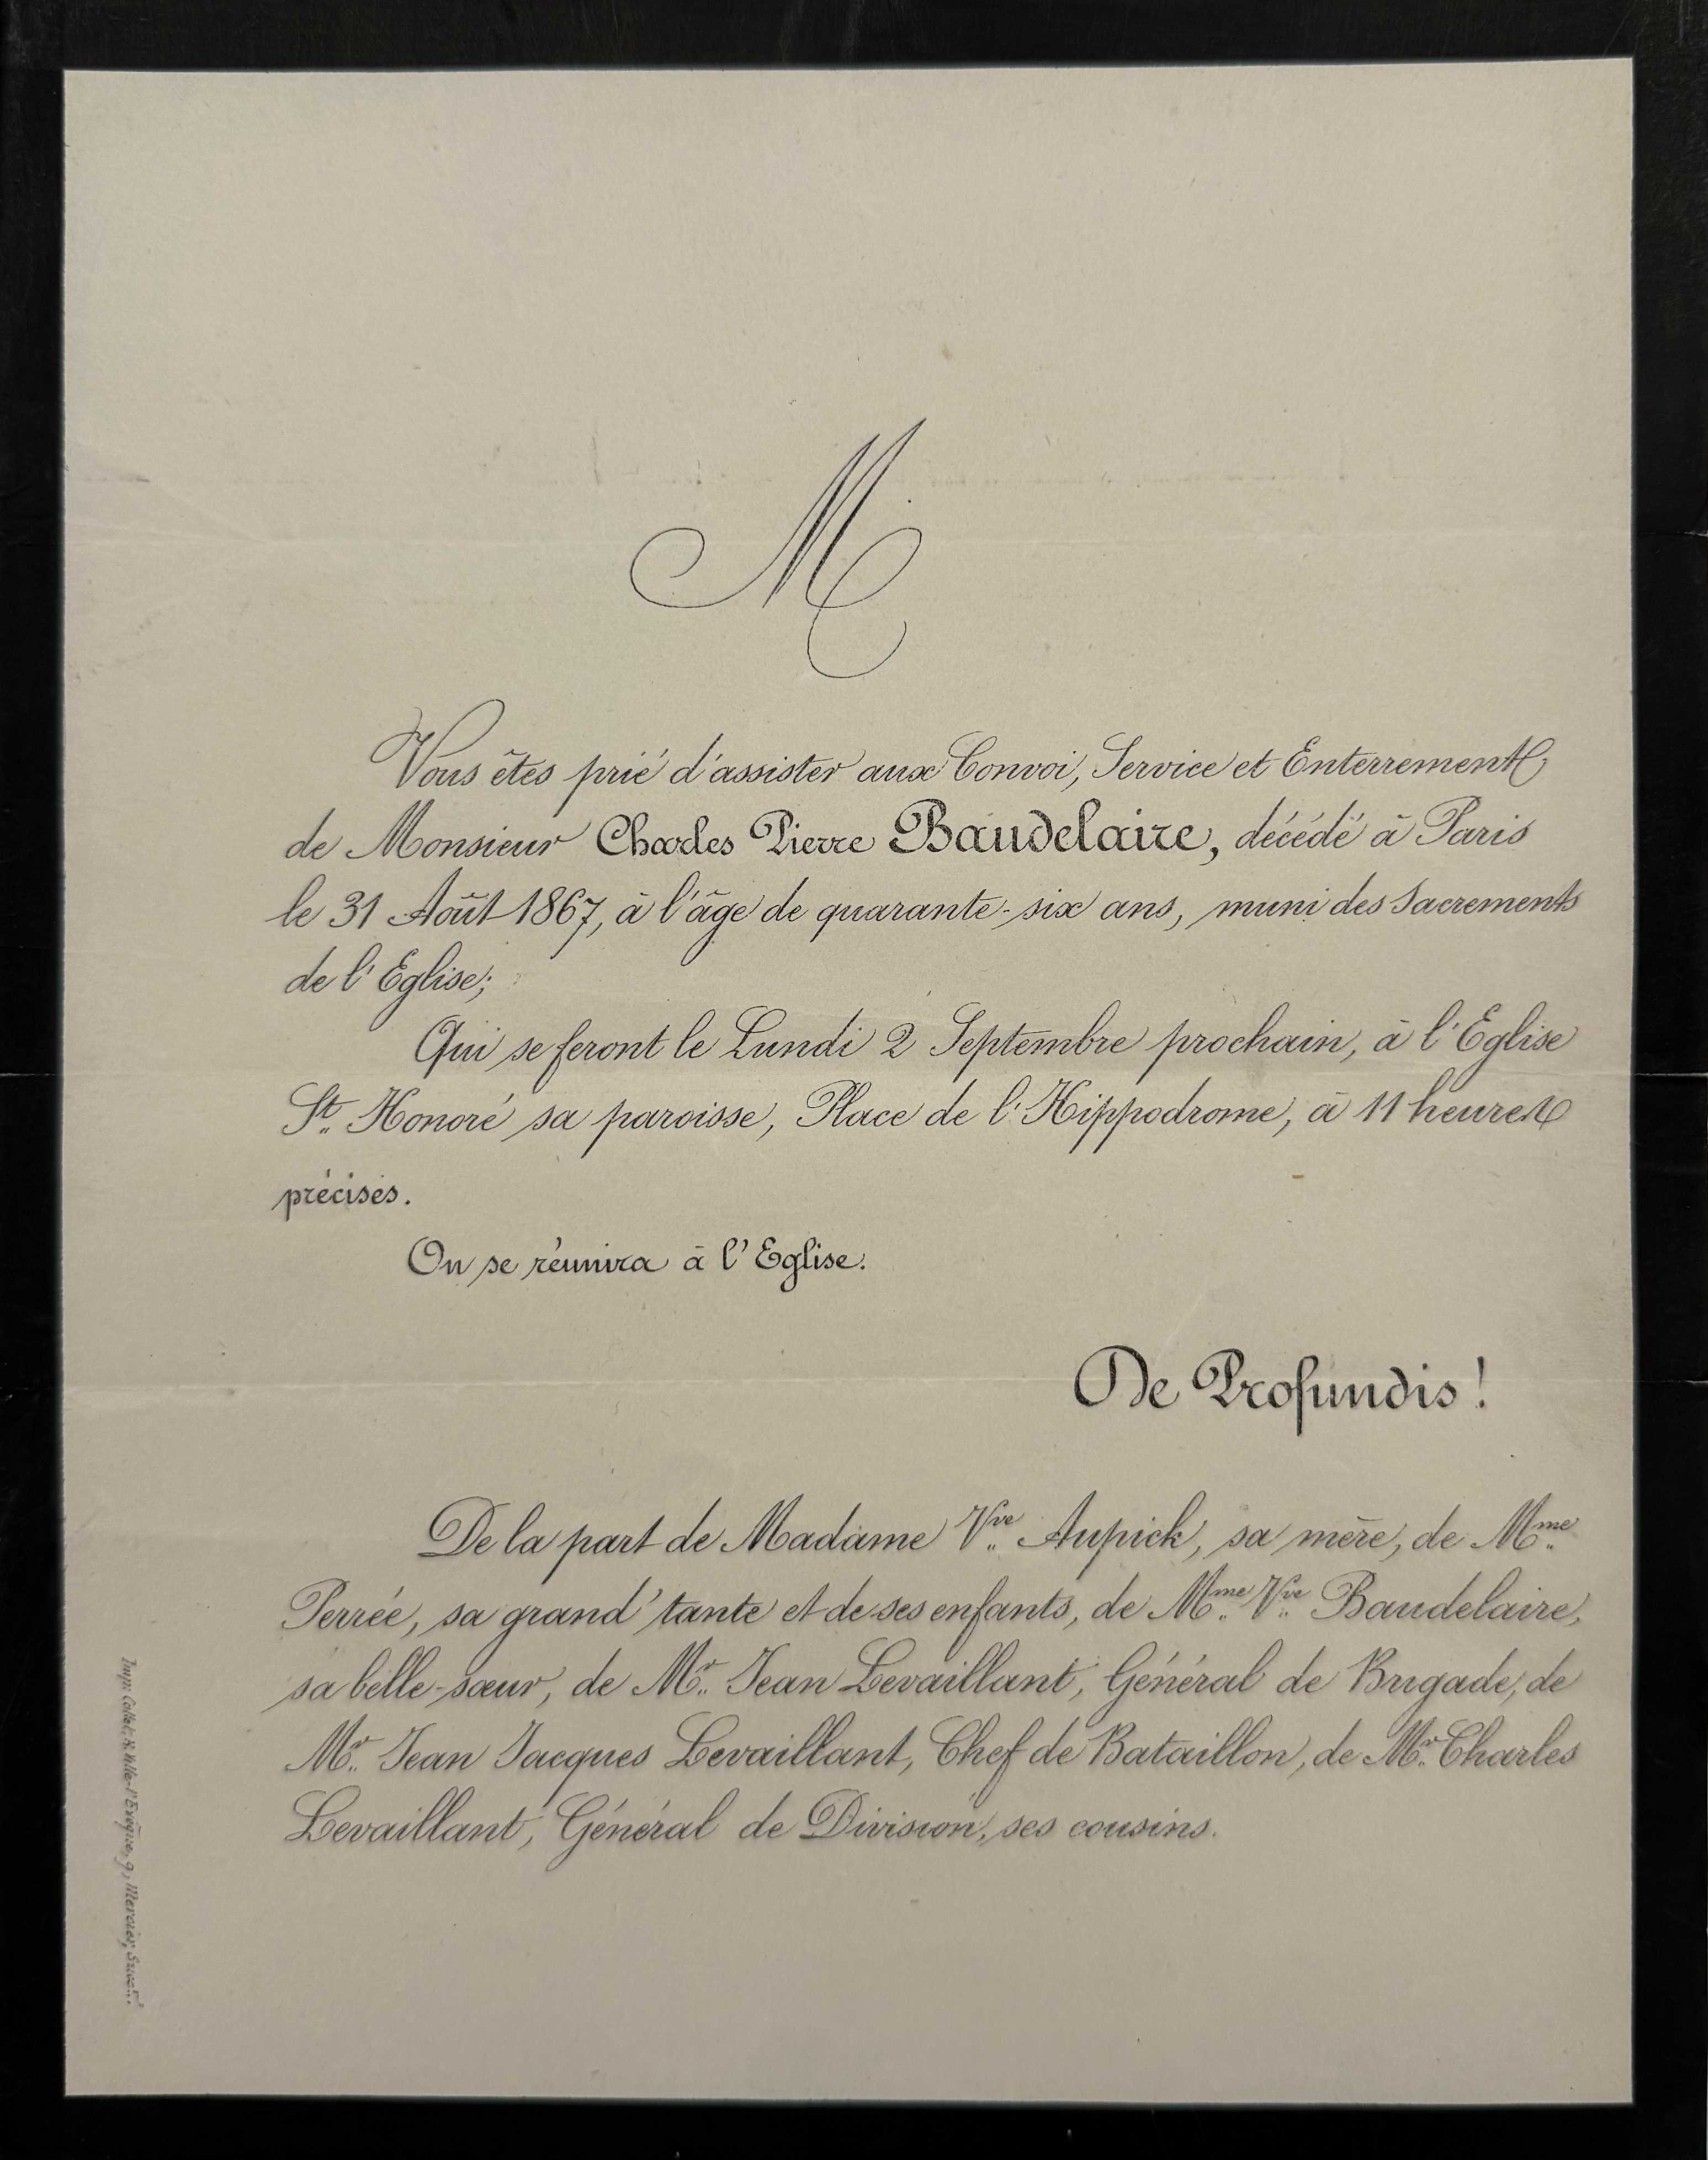 M
Vous êtes prié d'assister aux Convoi, Service et Enterrement
de Monsieur Charles Pierre Baudelaire, décédé à Paris
le 31 Août 1867, à l'âge de quarante-six ans, muni des Sacrements
de l'Eglise;
Qui se feront le Lundi 2 Septembre prochain, à l'Eglise
St. Honoré sa paroisse, Place de l'Hippodrome, à 11 heures
précises.
On se réunira à l'Eglise.
De Profundis!
De la part de Madame Vve. Aupick, sa mère, de Mme.
Perrée, sa grand'tante et de ses enfants, de Mme. Vve. Baudelaire,
sa belle-sœur, de Mr. Jean Levaillant, Général de Brigade, de
Mr. Jean Jacques Levaillant, Chef de Bataillon, de Mr. Charles
Levaillant, Général de Division, ses cousins.
Imp. Collet, R. Ville-l'Evêque, 9, Mercier, Succr.